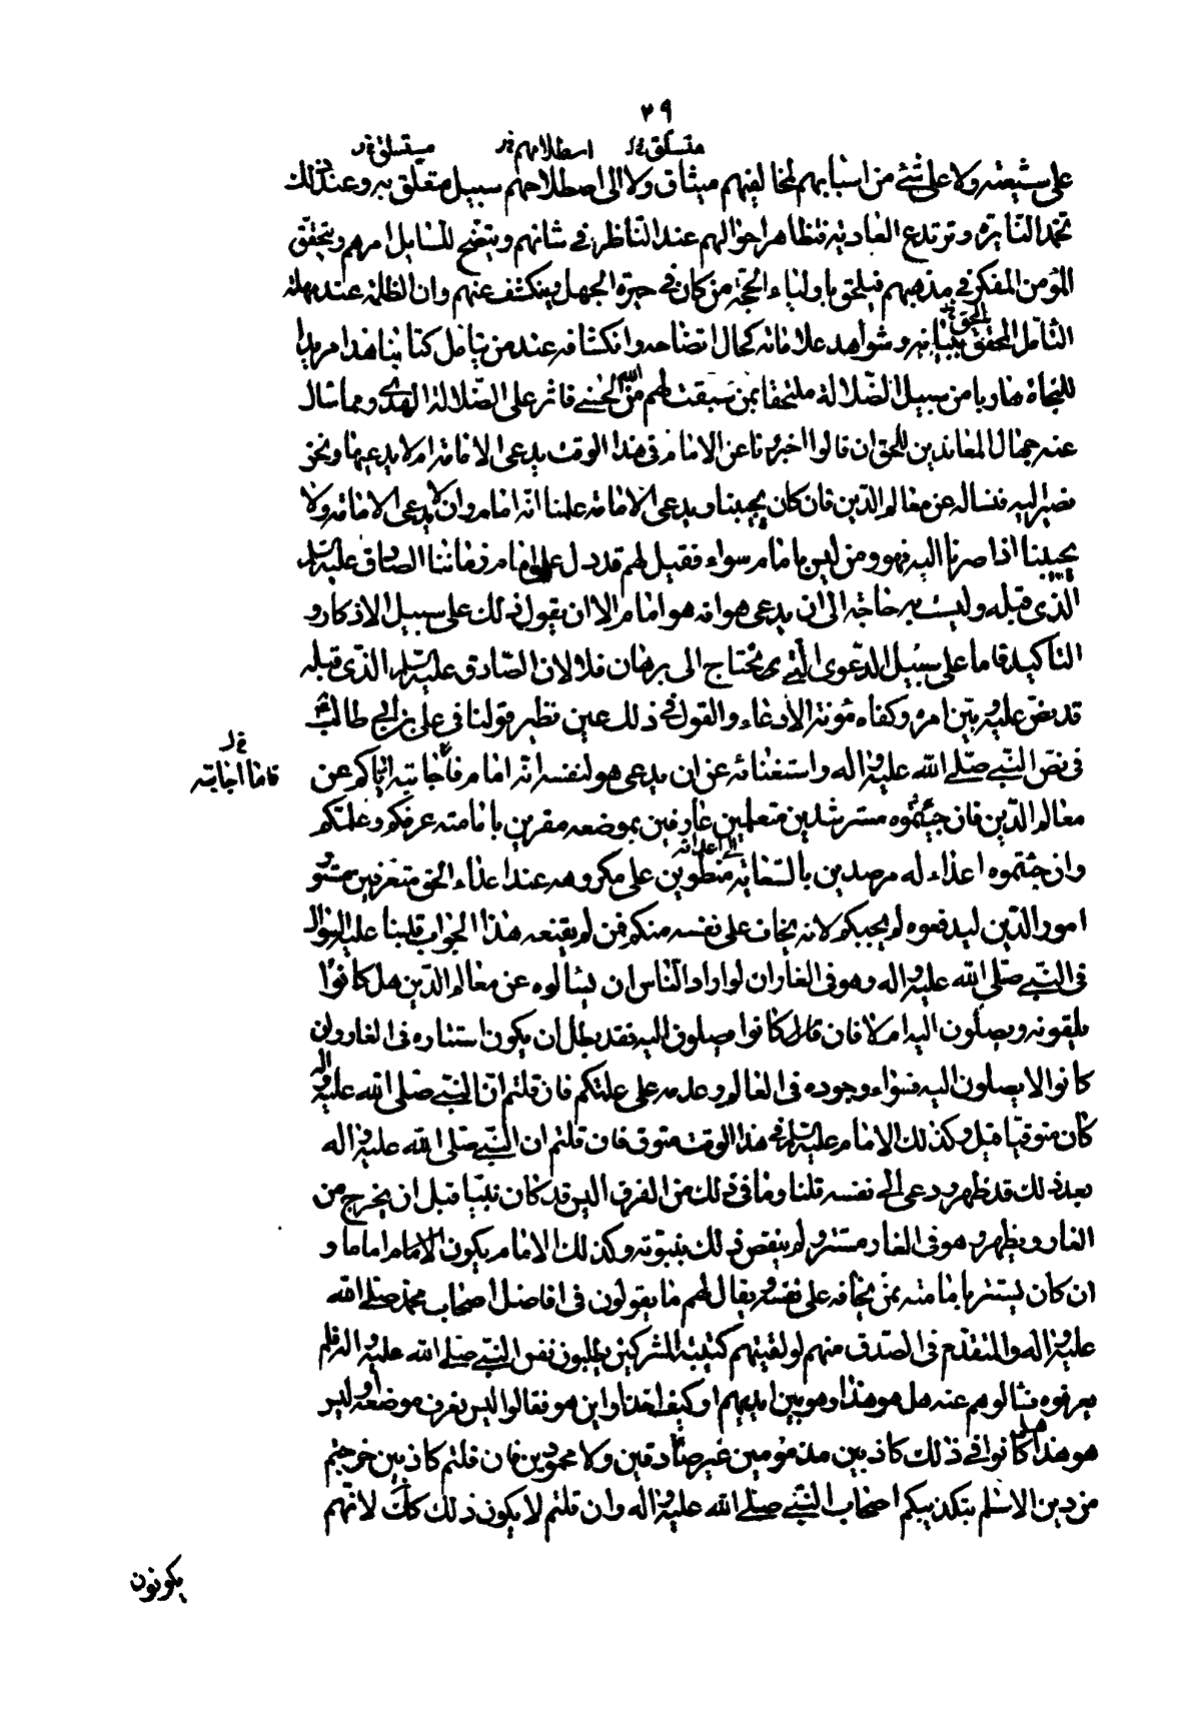 ٣٩
متسلق خ‌ل اصطلامهم خ‌ر مستسلق خ‌ر
على شيعته ولا على شئ من اسبابهم لمخالفيهم ميثاق ولا الى اصطلاحهم سبيل متعلق به وعند ذلك
تخمد النايرة وترتدع العادية فتظاهر احوالهم عند الناظر في شانهم ويتضح للمتامل امرهم ويتحقق
المؤمن المفكر في مذهبهم فيلحق باولياء الحجة من كان في حيرة الجهل وينكشف عنهم وان الظلمة عند مهلة
بالحق خ
التامل المحقق بيناته وشواهد علاماته كحال اتضاحه وانكشافه عند من يتامل كتابنا هذا مريدا
للنجاة هاربا من سبيل الضلالة ملتحقا بمن سبقت لهم من الله الحسنى فاثر على الضلالة الهدى ومما سال
عنه جهال المعاندين للحق ان قالوا اخبرونا عن الامام في هذا الوقت يدعى الامامة ام لا يدعيها ونحن
نصير اليه فنساله عن معالم الدين فان كان يجيبنا ويدعى الامامة علمنا انه امام وان لا يدعى الامامة ولا
يجيبنا اذا صرنا اليه فهو ومن ليس بامام سواء فقيل لهم قد دل على امام زماننا الصادق عليه السلام
الذى قبله وليست به حاجة الى ان يدعى هو انه هو امام الا ان يقول ذلك على سبيل الاذكار و
التاكيد فاما على سبيل الدعوى التي تحتاج الى برهان فلا لان الصادق عليه السلم الذى قبله
قد نص عليه وبين امره وكفاه مؤنة الادعاء والقول في ذلك عين نظير قولنا في على بن ابي طالب
في نص النبي صلى الله عليه واله واستغنائه عن ان يدعى هو لنفسه انه امام فاجابته اياكم عن
خ‌ل
فاما اجابته
معالم الدين فان جئتموه مسترشدين متعلمين عارفين بموضعه مقرين بامامته عرفكم وعلمكم
الى اعدائه
وان جئتموه اعداء له مرصدين بالسعاية منطوين على مكروهه عند اعداء الحق متعرفين مستور
امور الدين ليدفعوه لم يجبكم لانه يخاف على نفسه منكم فمن لم يقنعه هذا الجواب قلبنا عليه السؤال
في النبي صلى الله عليه واله وهو في الغار ان لو اراد الناس ان يسألوه عن معالم الدين هل كانوا
يلقونه ويصلون اليه ام لا فان قال كانوا يصلون اليه فقد بطل ان يكون استتاره في الغار وان
كانوا لا يصلون اليه فسواء وجوده في العالم وعدمه على علتكم فان قلتم ان النبي صلى الله عليه واله
كان متوقيا قيل وكذلك الامام عليه السلم في هذا الوقت متوق فان قلتم ان النبي صلى الله عليه واله
بعد ذلك قد ظهر ودعى الى نفسه قلنا وما في ذلك من الفرق اليس قد كان نبيا قبل ان يخرج من
الغار ويظهر وهو في الغار مستتر ولم ينقض ذلك بنبوته وكذلك الامام يكون الامام اماما و
ان كان يستتر بامامته ممن يخافه على نفسه ويقال لهم ما يقولون في افاضل اصحاب محمد صلى الله
عليه واله والمتقدم في الصدق منهم لو لقيتهم كتيبة المشركين يطلبون نفس النبي صلى الله عليه واله فلم
يعرفوه فسالوهم عنه هل هو هذا وهو بين ايديهم او كيف اخذ واين هو فقالوا ليس نعرف موضعه او ليس
هو هذا هل كانوا في ذلك كاذبين مذمومين غير صادقين ولا محمودين فان قلتم كاذبين خرجتم
من دين الاسلام بتكذيبكم اصحاب النبي صلى الله عليه واله وان قلتم لا يكون ذلك كذلك لانهم
يكونون